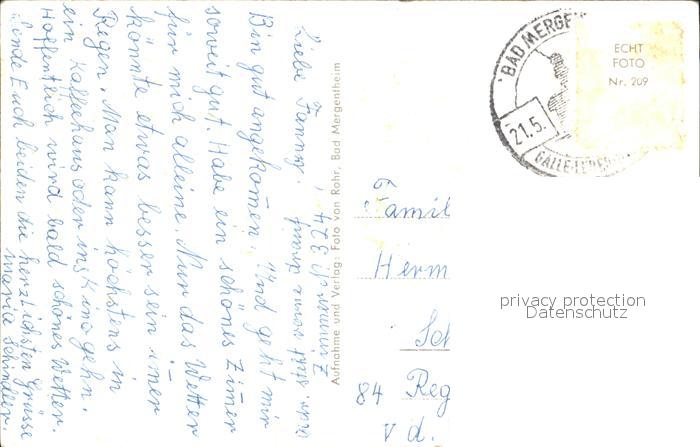 Liebe Fanny.
Bin gut angekomen. Und geht mir
soweit gut. Habe ein schönes Zimer
für mich alleine. Nur das Wetter
könnte etwas besser sein imer
Regen. Man kann höchstens in
ein Kaffeehaus oder ins Kino gehn.
Hoffentlich wird bald schönes Wetter.
Sende Euch beiden die herzlichsten Grüsse
Maria Schindler.
Zimmer N 324
Aufnahme und Verlag: Foto von Rohr, Bad Mergentheim
BAD MERGEN
21.5.
GALLE-LEBER
ECHT
FOTO
Nr. 209
Famil
Herm
Sch
84 Reg
v d.
privacy protection
Datenschutz